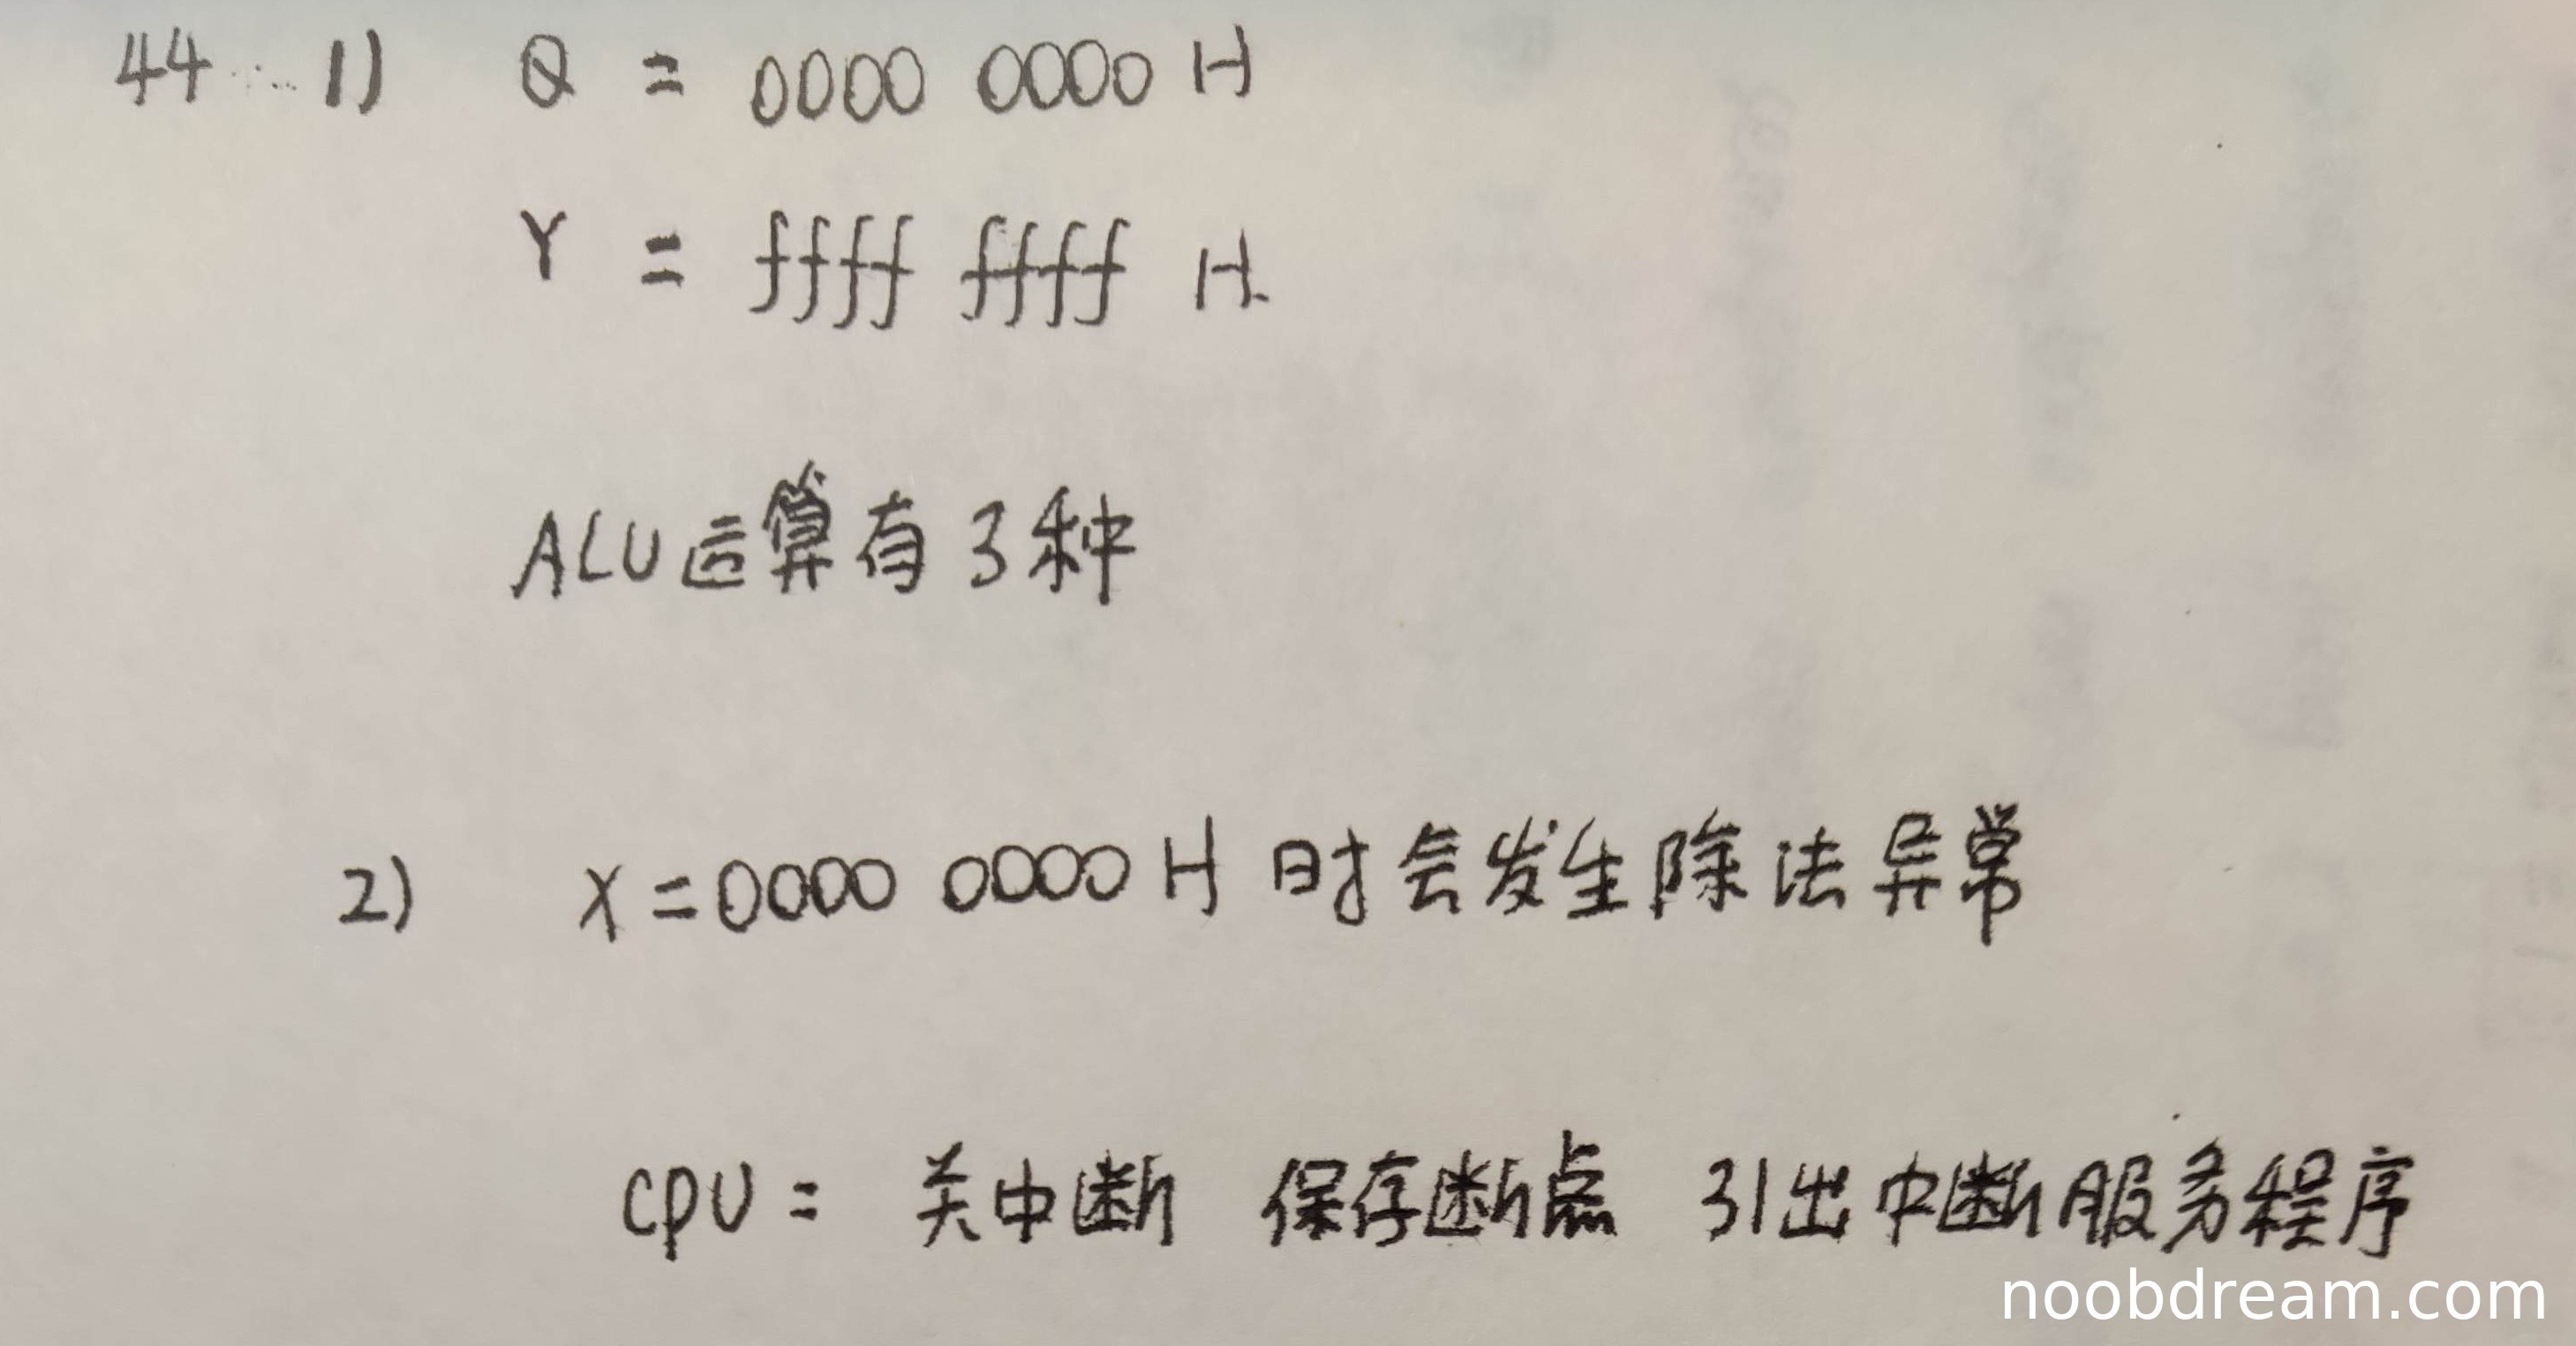 44 1) Q = 0000 0000 H
Y = ffff ffff H.
ALU运算有3种
2) X=0000 0000 H 时会发生除法异常
CPU: 关中断 保存断点 引出中断服务程序
noobdream.com